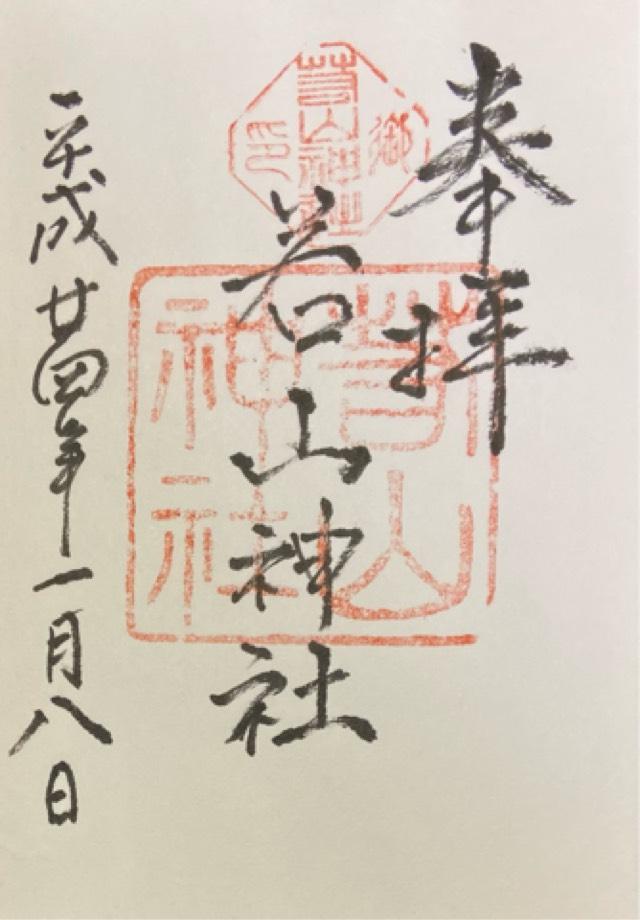 奉拝
御
若山神社
印
若山神社
若山
神社
平成廿四年一月八日